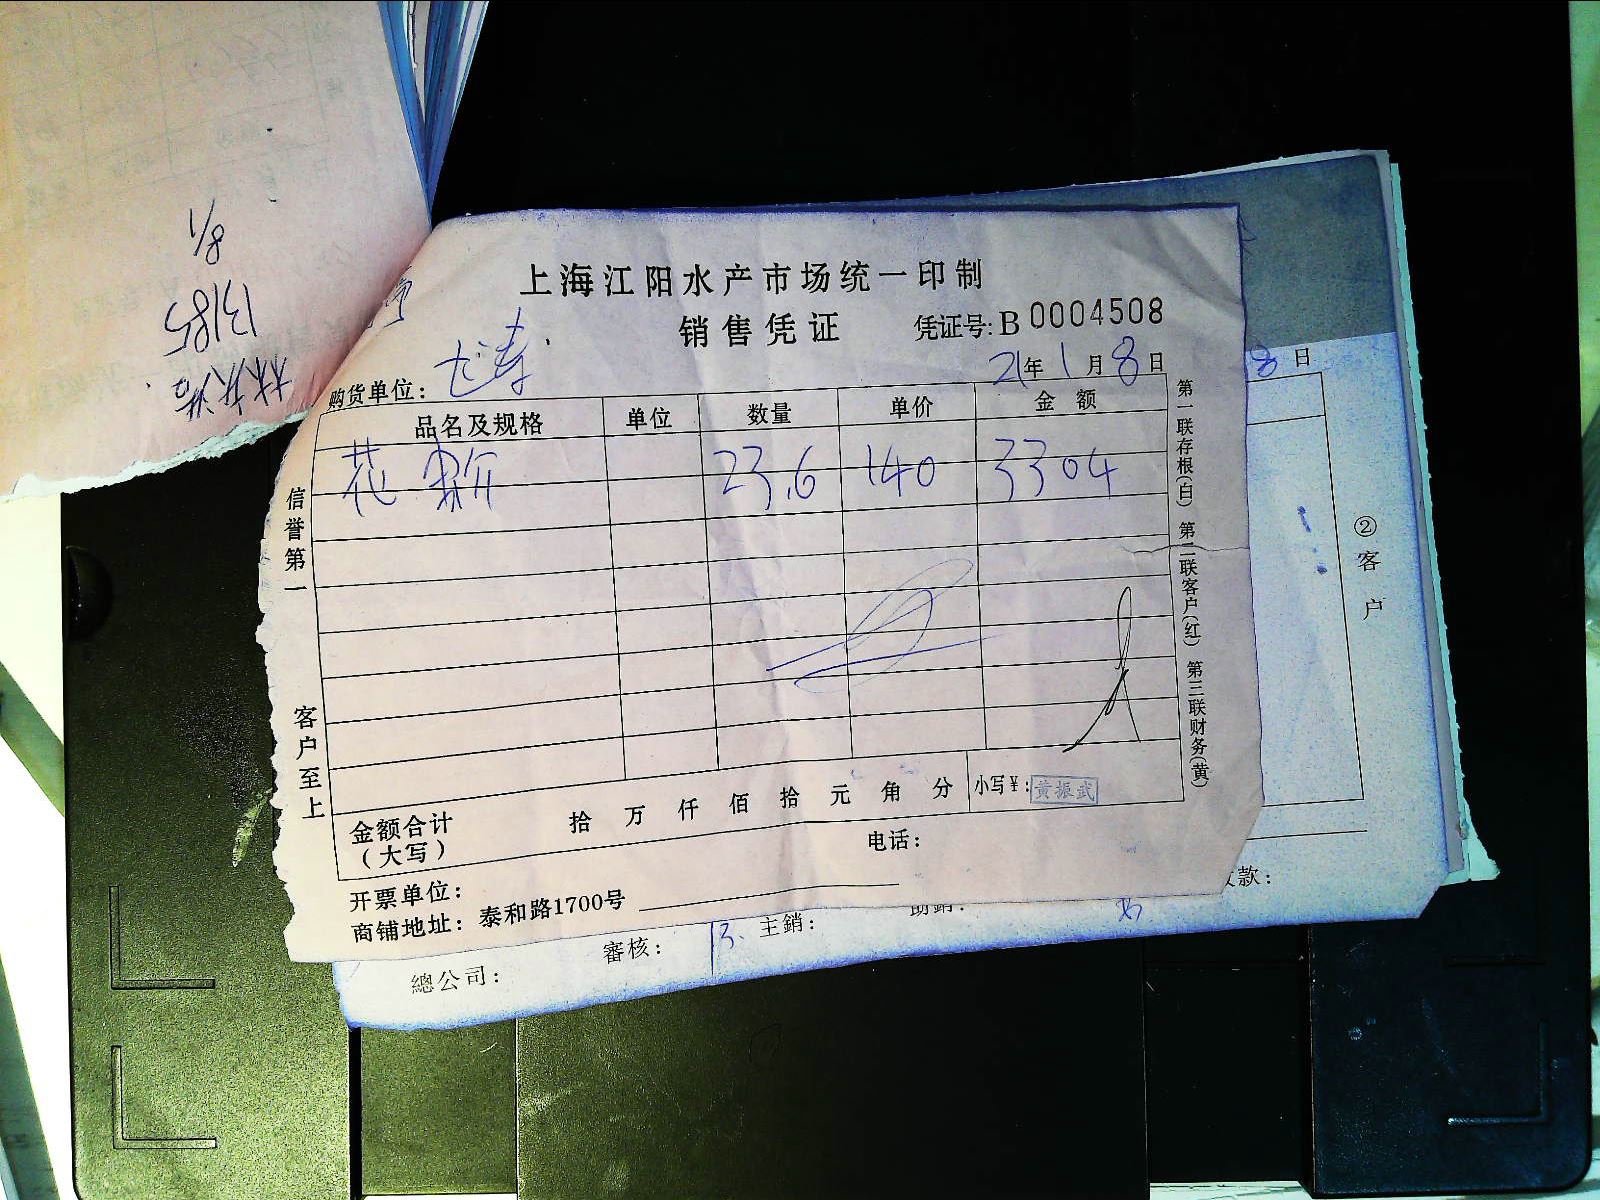 8/1
13185
上海江阳水产市场统一印制
销售凭证 凭证号: B 0004508
购货单位: 飞涛 21年1月8日
品名及规格 单位 数量 单价 金额
花 23.6 140 3304
金额合计(大写) 拾 万 仟 佰 拾 元 角 分 小写¥: 黄振武
开票单位: 电话:
商铺地址: 泰和路1700号
信誉第一
客户至上
第一联存根(白) 第二联客户(红) 第三联财务(黄)
8日
②客户
總公司: 審核: 主銷: 助銷: 款: